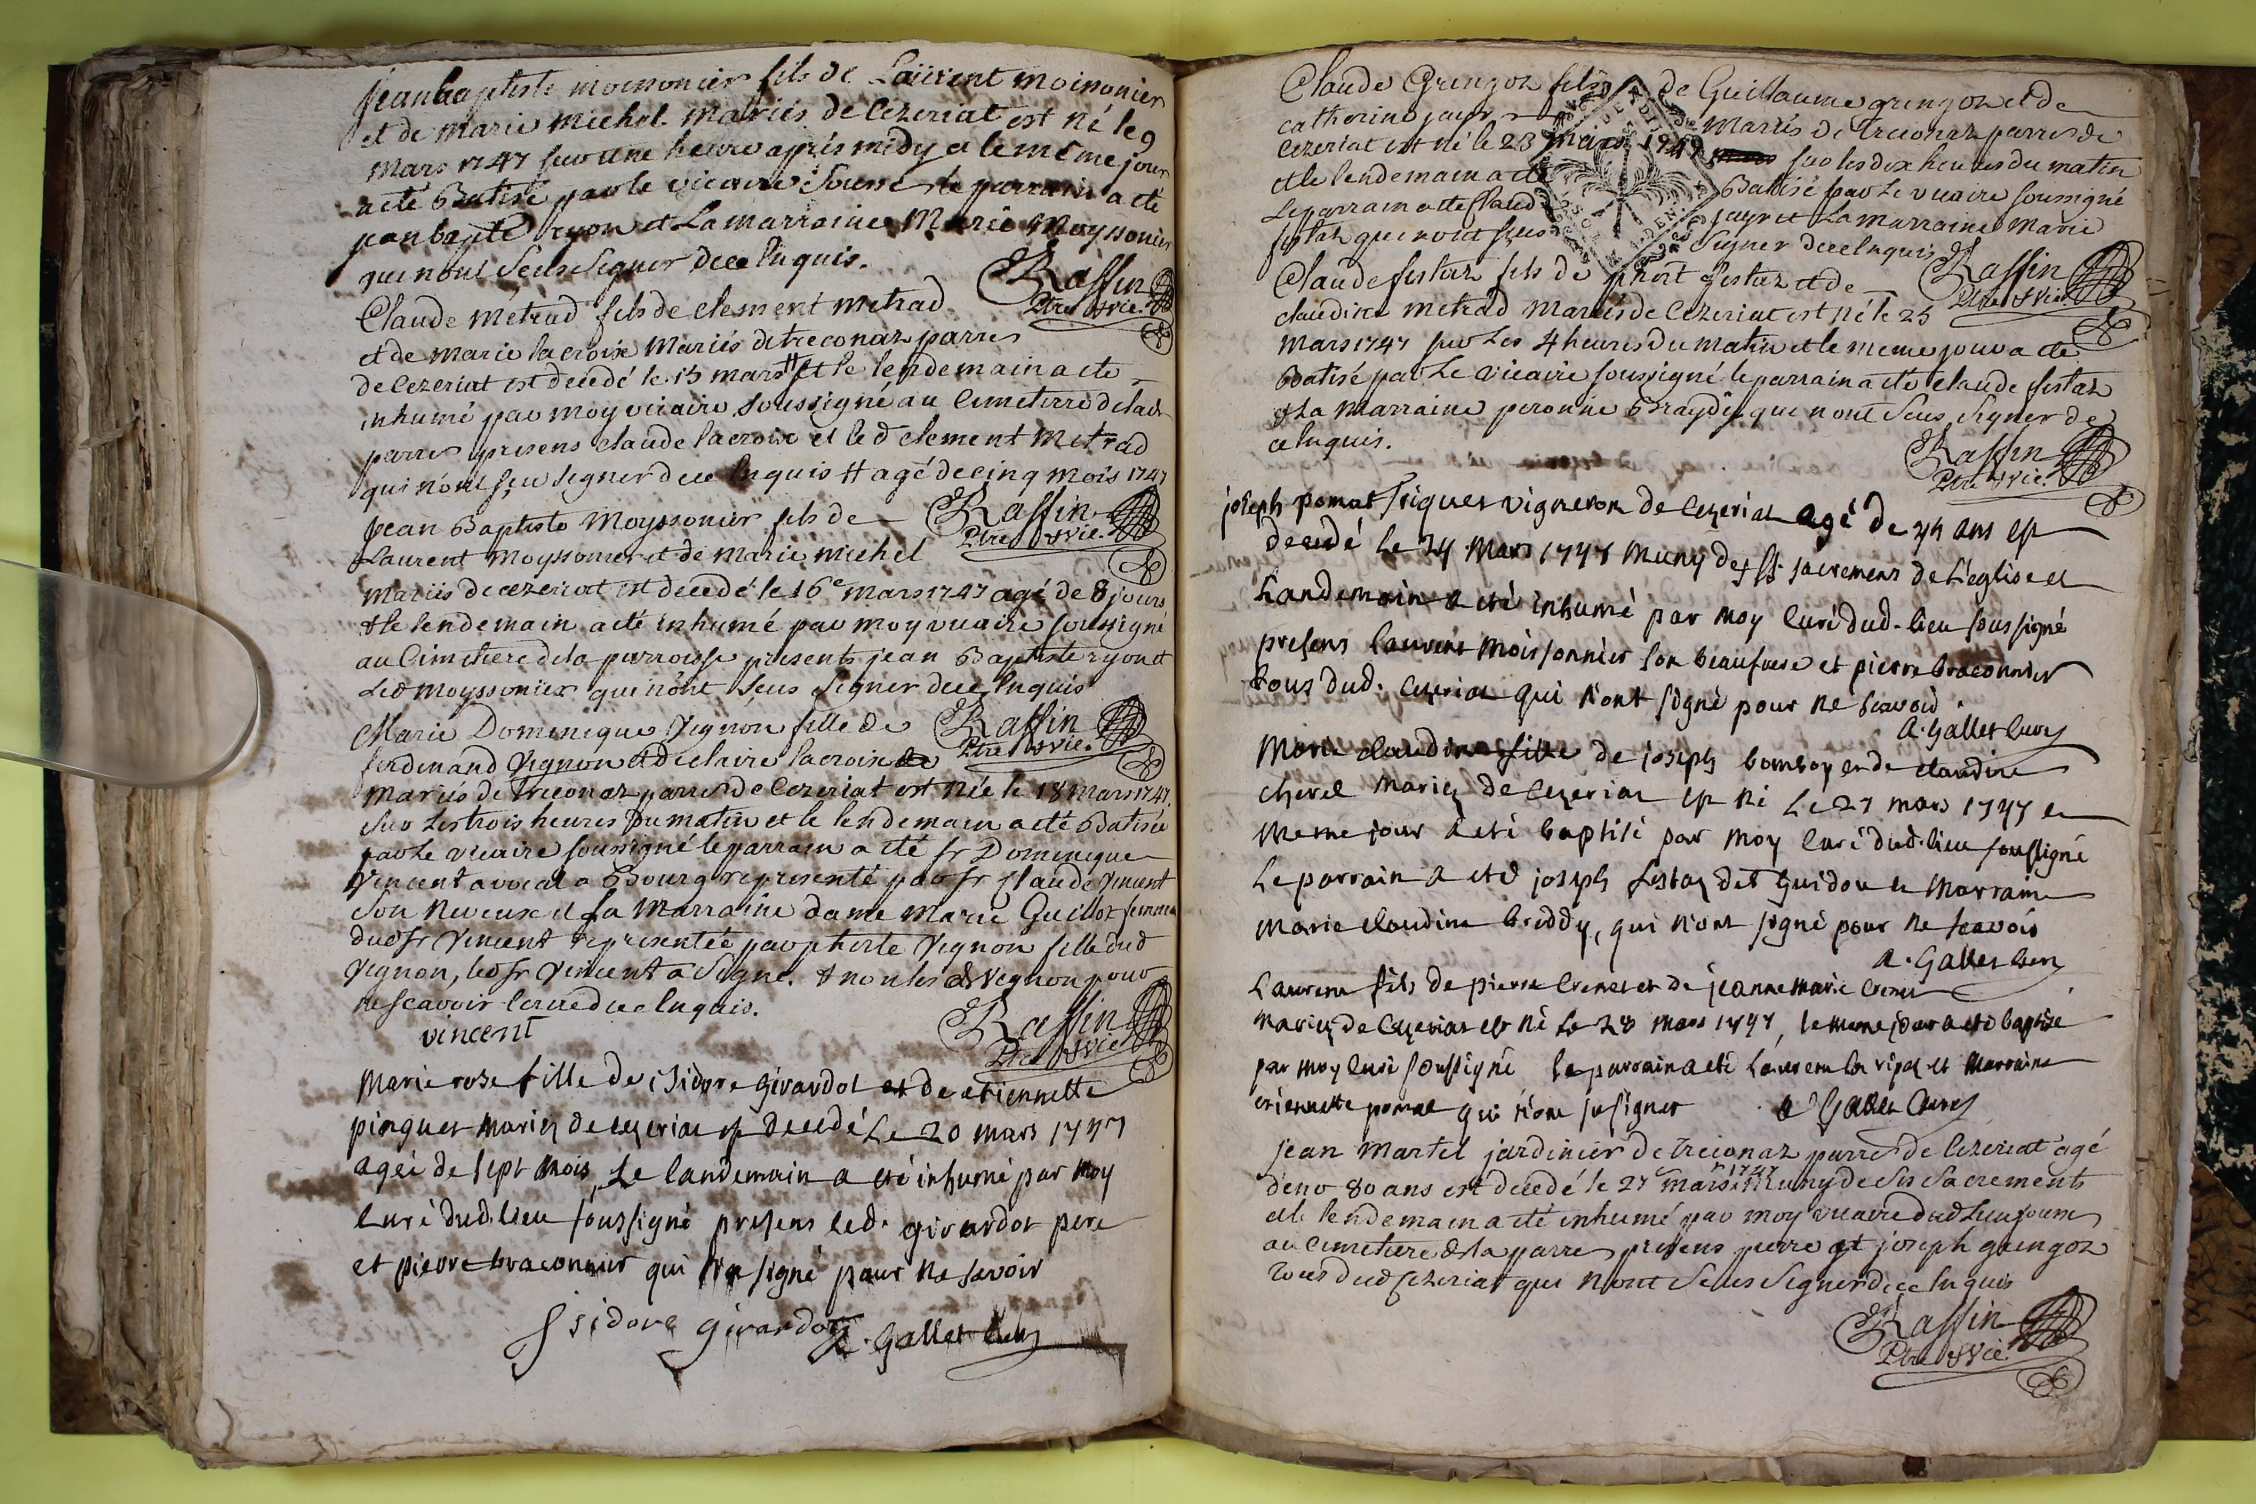 jeanbaptiste moissonier fils de Laurent moissonier
et de marie michel mariés de Cezeriat est né le 9
mars 1747 sur une heure après midy et le même jour
a eté Batisé par le vicaire Soussé le parrain a eté
jean baptte ryon et La marraine Marie Moyssonier
qui n'ont Seus Signer dece Enquis.
Raffin
Ptre & Vic.
Claude métrad fils de clement metrad
et de marie lacroix Mariés de treconaz parre
de Cezeriat est decedé le 15 mars # et le lendemain a eté
inhumé par moy vicaire soussigné au Cimetierre de lad
parre presens claude lacroix et led clement Metrad
qui n'ont sçu signer dece Enquis # agé de cinq mois 1747
Raffin
Ptre & Vic.
Jean Baptiste Moyssonier fils de
Laurent Moyssonier et de Marie michel
mariés de cezeriat est decedé le 16e mars 1747 agé de 8 jours
& le lendemain a eté inhumé par moy vicaire soussigné
au Cimetiere dela parroisse presents jean Baptiste ryon et
Led moyssonier qui n'ont sçeus signer dece Enquis
Raffin
Ptre & Vic.
Marie Dominique Vignon fille de
ferdinand Vignon et de claire lacroix
Mariés de treconaz parre de Cezeriat est Née le 18 mars 1747
sur Les trois heures du matin et le lendemain a eté Batisée
par Le vicaire soussigné le parrain a eté sr Dominique
Vincent avocat a Bourg representé par sr Claude Vincent
Son Neveux et sa Marraine dame Marie Guillot femme
dud sr Vincent representée par ptherte Vignon fille dud
Vignon, led sr Vincent a signé. & non les d Vignon pour
ne scavoir lecrire dece Enquis.
Raffin
Ptre & Vic.
vincent
Marie rose fille de isidore girardot et de etiennette
pinguet mariez de cezeriat est decedé Le 20 mars 1747
ageé de sept mois, Le landemain a eté inhumé par moy
Curé dud. lieu soussigné presens led. girardot pere
et pierre braconnier qui n'a signé pour ne savoir
Isidore girardot
A. Gallet Curé
Claude Gringoz fils de Guillaume gringoz et de
catherine jayr Mariés de treconaz parre de
Cezeriat est né le 23 mars 1747 sur les dix heures du matin
et le lendemain a eté Batisé par Le vicaire soussigné
Le parrain a eté Claude jayr et La marraine Marie
festaz qui n'ont sçeus signer dece Enquis
Raffin
Ptre & Vic.
Claude festaz fils de phort festaz et de
claudine metrad Mariés de Cezeriat est Né le 25
mars 1747 sur Les 4 heures du matin et le meme jour a eté
Batisé par Le vicaire soussigné le parrain a eté claude festaz
& La Marraine peronne Braydy qui n'ont Seus Signer de
ce Enquis.
Raffin
Ptre & Vic.
joseph pomat vigneron de Cezeriat agé de 44 ans est
decedé Le 24 mars 1747 muny des sts sacremens de L'eglise et
Landemain a eté inhumé par moy Curé dud. lieu soussigné
presens laurent moissonnier son beaufrere et pierre braconnier
tous dud. Cezeriat qui n'ont signé pour ne scavoir
A. Gallet Curé
Marie claudine fille de joseph bomboy et de claudine
chevrel mariez de Cezeriat est né Le 27 mars 1747 le
meme jour a eté baptisé par moy Curé dud. lieu soussigné
Le parrain a eté joseph festaz dit Guidon et Marraine
marie claudine breddy, qui n'ont signé pour ne scavoir
A. Gallet Curé
Laurent fils de pierre Crenet et de jeanne marie
mariez de Cezeriat est né Le 28 mars 1747, le meme jour a eté baptisé
par moy Curé soussigné le parrain a eté Laurent et Marraine
etiennette pomat qui n'ont su signer A Gallet Curé
jean Martel jardinier de treconaz parre de Cezeriat agé
denv 80 ans est decedé le 27 mars 1747 Muny de Sts Sacrements
et le lendemain a eté inhumé par moy vicaire dud Lieu soussé
au Cimetiere de la parre presens pierre et joseph gringoz
tous dud Cezeriat qui n'ont Seus Signer dece Enquis
Raffin
Ptre & Vic.